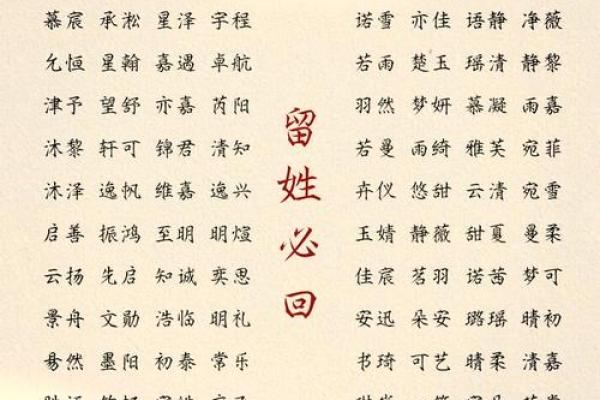 慕宸 承淞 星泽 宇程
允恒 星翰 嘉遇 卓航
津予 望舒 亦嘉 芮阳
沐黎 轩可 锦君 清知
沐泽 逸帆 维嘉 逸兴
启善 振鸿 至明 明煊
云扬 先启 知诚 奕思
景舟 文勋 浩临 明礼
易然 墨阳 初泰 常乐
留姓必回
诺雪 亦佳 语静 净薇
若雨 楚玉 瑶清 静黎
羽然 梦妍 慕凝 雨嘉
若曼 雨绮 雅芙 宛菲
卉仪 悠甜 云清 宛雪
玉婧 静薇 甜夏 曼柔
佳宸 茗羽 诺茜 梦可
安迅 朵安 璐瑶 晴初
书琦 可艺 晴柔 清嘉